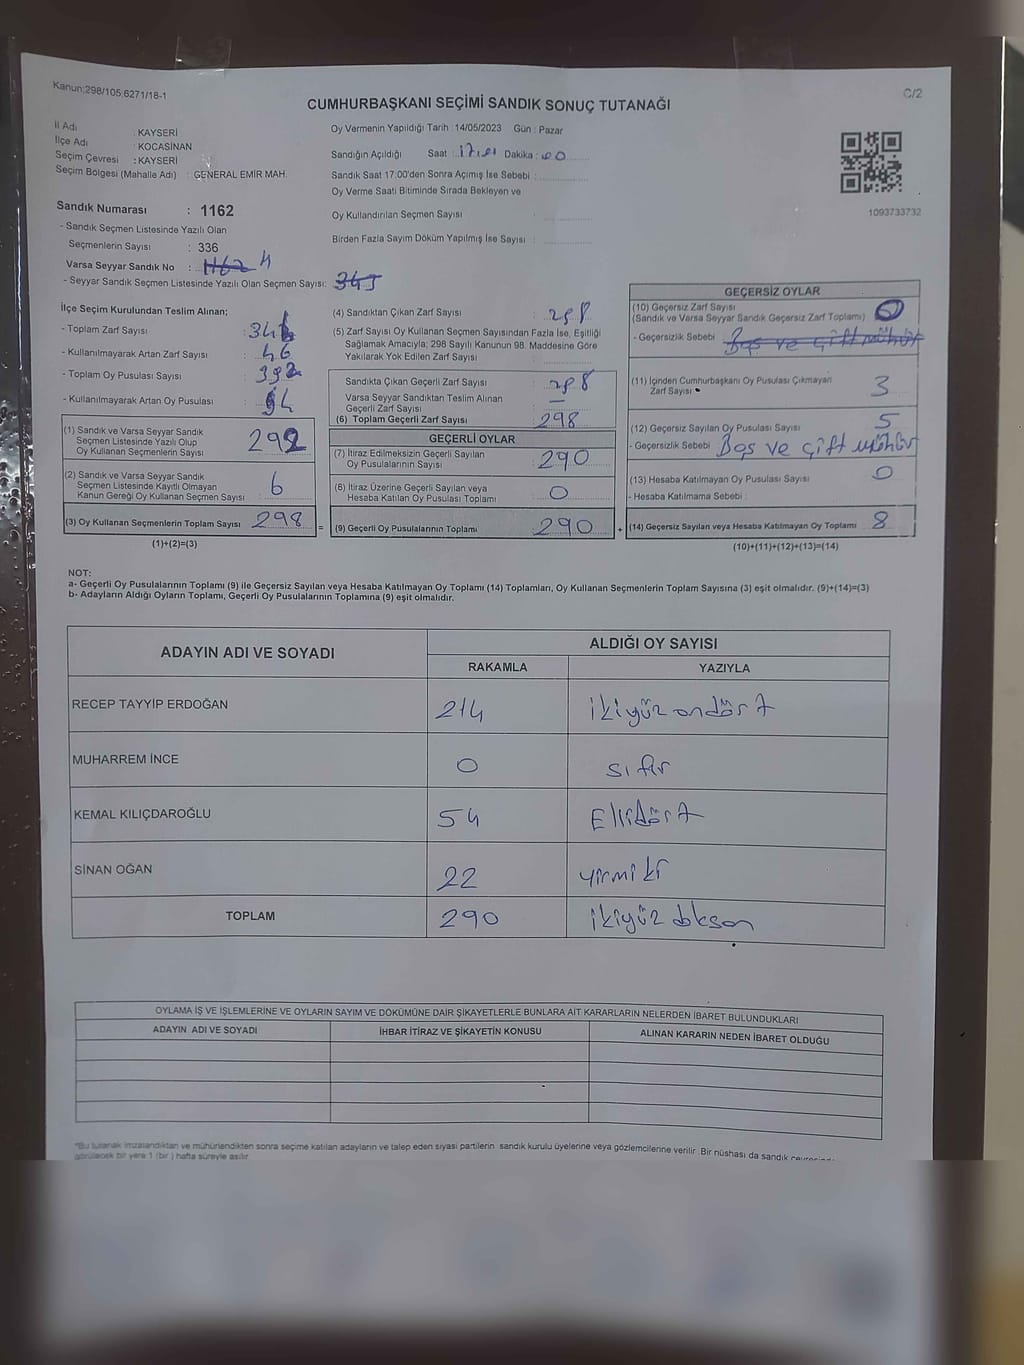 Kanun:298/105;6271/18-1
C/2
CUMHURBAŞKANI SEÇİMİ SANDIK SONUÇ TUTANAĞI
İl Adı : KAYSERİ
İlçe Adı : KOCASİNAN
Seçim Çevresi : KAYSERİ
Seçim Bölgesi (Mahalle Adı) : GENERAL EMİR MAH.
Sandık Numarası : 1162
- Sandık Seçmen Listesinde Yazılı Olan
Seçmenlerin Sayısı : 336
Varsa Seyyar Sandık No :
- Seyyar Sandık Seçmen Listesinde Yazılı Olan Seçmen Sayısı:
Oy Vermenin Yapıldığı Tarih : 14/05/2023 Gün : Pazar
Sandığın Açıldığı Saat : Dakika :
Sandık Saat 17:00'den Sonra Açımış İse Sebebi :
Oy Verme Saati Bitiminde Sırada Bekleyen ve
Oy Kullandırılan Seçmen Sayısı :
Birden Fazla Sayım Döküm Yapılmış İse Sayısı :
1093733732
İlçe Seçim Kurulundan Teslim Alınan;
- Toplam Zarf Sayısı :
- Kullanılmayarak Artan Zarf Sayısı : 46
- Toplam Oy Pusulası Sayısı : 392
- Kullanılmayarak Artan Oy Pusulası :
(1) Sandık ve Varsa Seyyar Sandık
Seçmen Listesinde Yazılı Olup
Oy Kullanan Seçmenlerin Sayısı : 292
(2) Sandık ve Varsa Seyyar Sandık
Seçmen Listesinde Kayıtlı Olmayan
Kanun Gereği Oy Kullanan Seçmen Sayısı : 6
(3) Oy Kullanan Seçmenlerin Toplam Sayısı : 298 =
(1)+(2)=(3)
(4) Sandıktan Çıkan Zarf Sayısı : 298
(5) Zarf Sayısı Oy Kullanan Seçmen Sayısından Fazla İse, Eşitliği
Sağlamak Amacıyla; 298 Sayılı Kanunun 98. Maddesine Göre
Yakılarak Yok Edilen Zarf Sayısı :
Sandıkta Çıkan Geçerli Zarf Sayısı : 298
Varsa Seyyar Sandıktan Teslim Alınan
Geçerli Zarf Sayısı : —
(6) Toplam Geçerli Zarf Sayısı : 298
GEÇERLİ OYLAR
(7) İtiraz Edilmeksizin Geçerli Sayılan
Oy Pusulalarının Sayısı : 290
(8) İtiraz Üzerine Geçerli Sayılan veya
Hesaba Katılan Oy Pusulası Toplamı : 0
(9) Geçerli Oy Pusulalarının Toplamı : 290 +
GEÇERSİZ OYLAR
(10) Geçersiz Zarf Sayısı
(Sandık ve Varsa Seyyar Sandık Geçersiz Zarf Toplamı) :
- Geçersizlik Sebebi : Boş ve çift mühür
(11) İçinden Cumhurbaşkanı Oy Pusulası Çıkmayan
Zarf Sayısı : 3
(12) Geçersiz Sayılan Oy Pusulası Sayısı : 5
- Geçersizlik Sebebi : Boş ve çift mühür
(13) Hesaba Katılmayan Oy Pusulası Sayısı : 0
- Hesaba Katılmama Sebebi :
(14) Geçersiz Sayılan veya Hesaba Katılmayan Oy Toplamı : 8
(10)+(11)+(12)+(13)=(14)
NOT:
a- Geçerli Oy Pusulalarının Toplamı (9) ile Geçersiz Sayılan veya Hesaba Katılmayan Oy Toplamı (14) Toplamları, Oy Kullanan Seçmenlerin Toplam Sayısına (3) eşit olmalıdır. (9)+(14)=(3)
b- Adayların Aldığı Oyların Toplamı, Geçerli Oy Pusulalarının Toplamına (9) eşit olmalıdır.
ADAYIN ADI VE SOYADI
ALDIĞI OY SAYISI
RAKAMLA YAZIYLA
RECEP TAYYİP ERDOĞAN 214 ikiyüz ondört
MUHARREM İNCE 0 sıfır
KEMAL KILIÇDAROĞLU 54 Ellidört
SİNAN OĞAN 22 yirmi iki
TOPLAM 290 ikiyüz doksan
OYLAMA İŞ VE İŞLEMLERİNE VE OYLARIN SAYIM VE DÖKÜMÜNE DAİR ŞİKAYETLERLE BUNLARA AİT KARARLARIN NELERDEN İBARET BULUNDUKLARI
ADAYIN ADI VE SOYADI İHBAR İTİRAZ VE ŞİKAYETİN KONUSU ALINAN KARARIN NEDEN İBARET OLDUĞU
*Bu tutanak imzalandıktan ve mühürlendikten sonra seçime katılan adayların ve talep eden siyasi partilerin sandık kurulu üyelerine veya gözlemcilerine verilir. Bir nüshası da sandık
görülecek bir yere 1 (bir) hafta süreyle asılır.